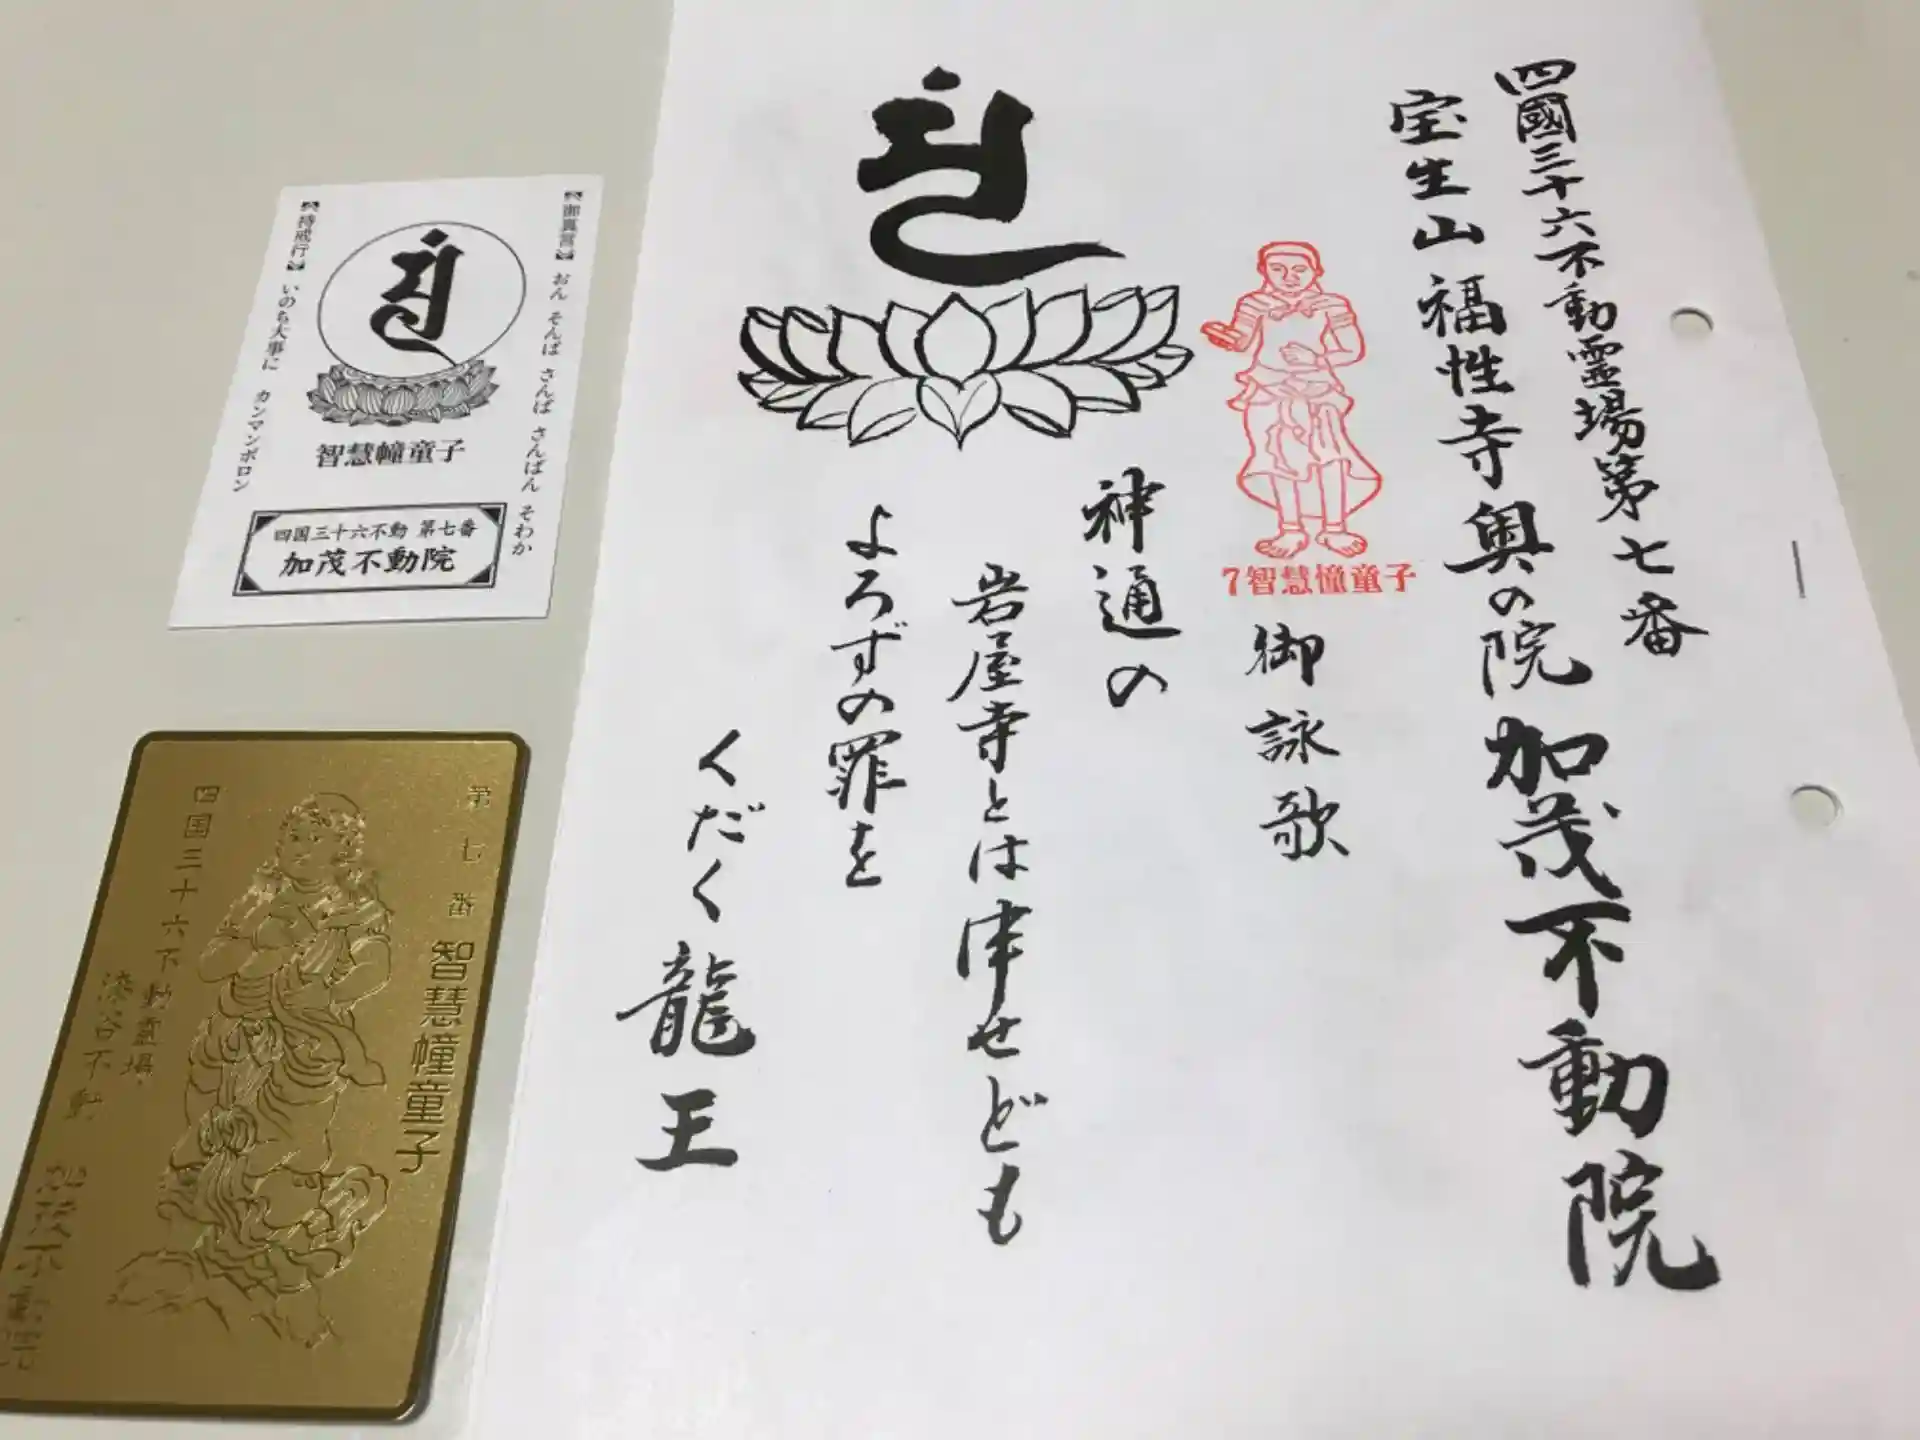 四國三十六不動霊場第七番
宝生山福性寺奥の院加茂不動院
7智慧幢童子
御詠歌
神通の
岩屋寺とは津せども
よろずの罪を
くだく龍王
【御真言】おん そんば さんば さんばん そわか
【持戒行】いのち大事に カンマンボロン
智慧幢童子
四国三十六不動 第七番
加茂不動院
第七番 智慧幢童子
四国三十六不動霊場